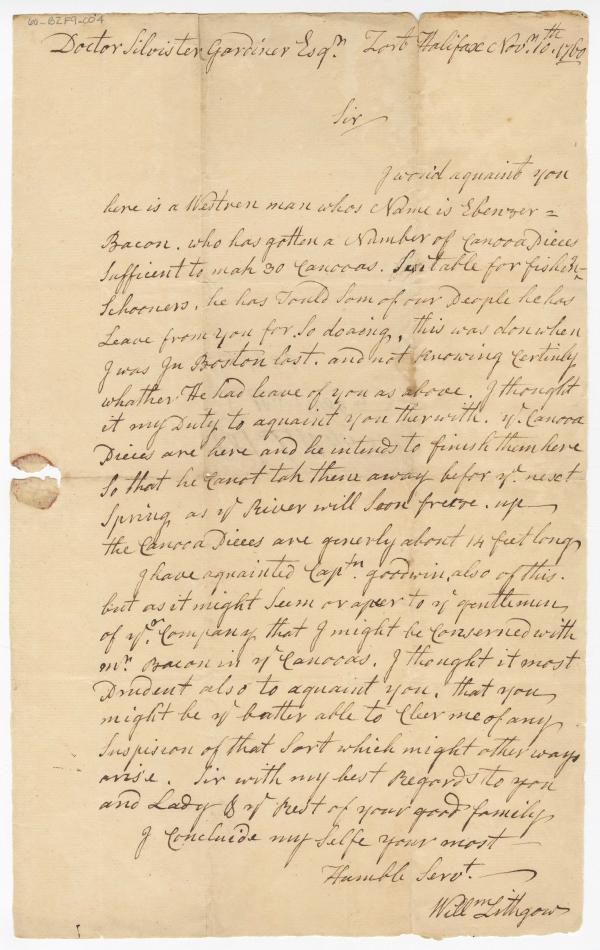 60-BZF9-004
Doctor Silvister Gardiner Esqr. Fort Halifax Novr. 10th. 1760
Sir
I would aquaint you
here is a Westren man whos Name is Ebenzer =
Bacon. who has gotten a Number of Canooa Pieces
Sufficent to mak 30 Canooas. Suitable for fishin-
Schooners. he has Tould Som of our People he has
Leave from you for So doaing, this was don when
I was In Boston last. and not Knowing Certinly
whather He had leave of you as above. I thought
it my Duty to aquaint you therwith. ye. Canooa
Pieces are here and he intends to finish them here
So that he Canot tak them away befor ye. next
Spring as ye River will Soon freeze. up
the Canooa Pieces are generly about 14 feet long
I have aquainted Captn. goodwin also of this.
but as it might Seem or aper to ye gentlemen
of yor. Company that I might be Conserned with
mr. Bacon in ye Canooas. I thought it most
Prudent also to aquaint you, that you
might be ye batter able to Cleer me of any
Suspision of that Sort which might other ways
arise. Sir with my best Regards to you
and Lady & ye Rest of your good family
I Concluide my Selfe your most
Humble Servt.
Willm Lithgow